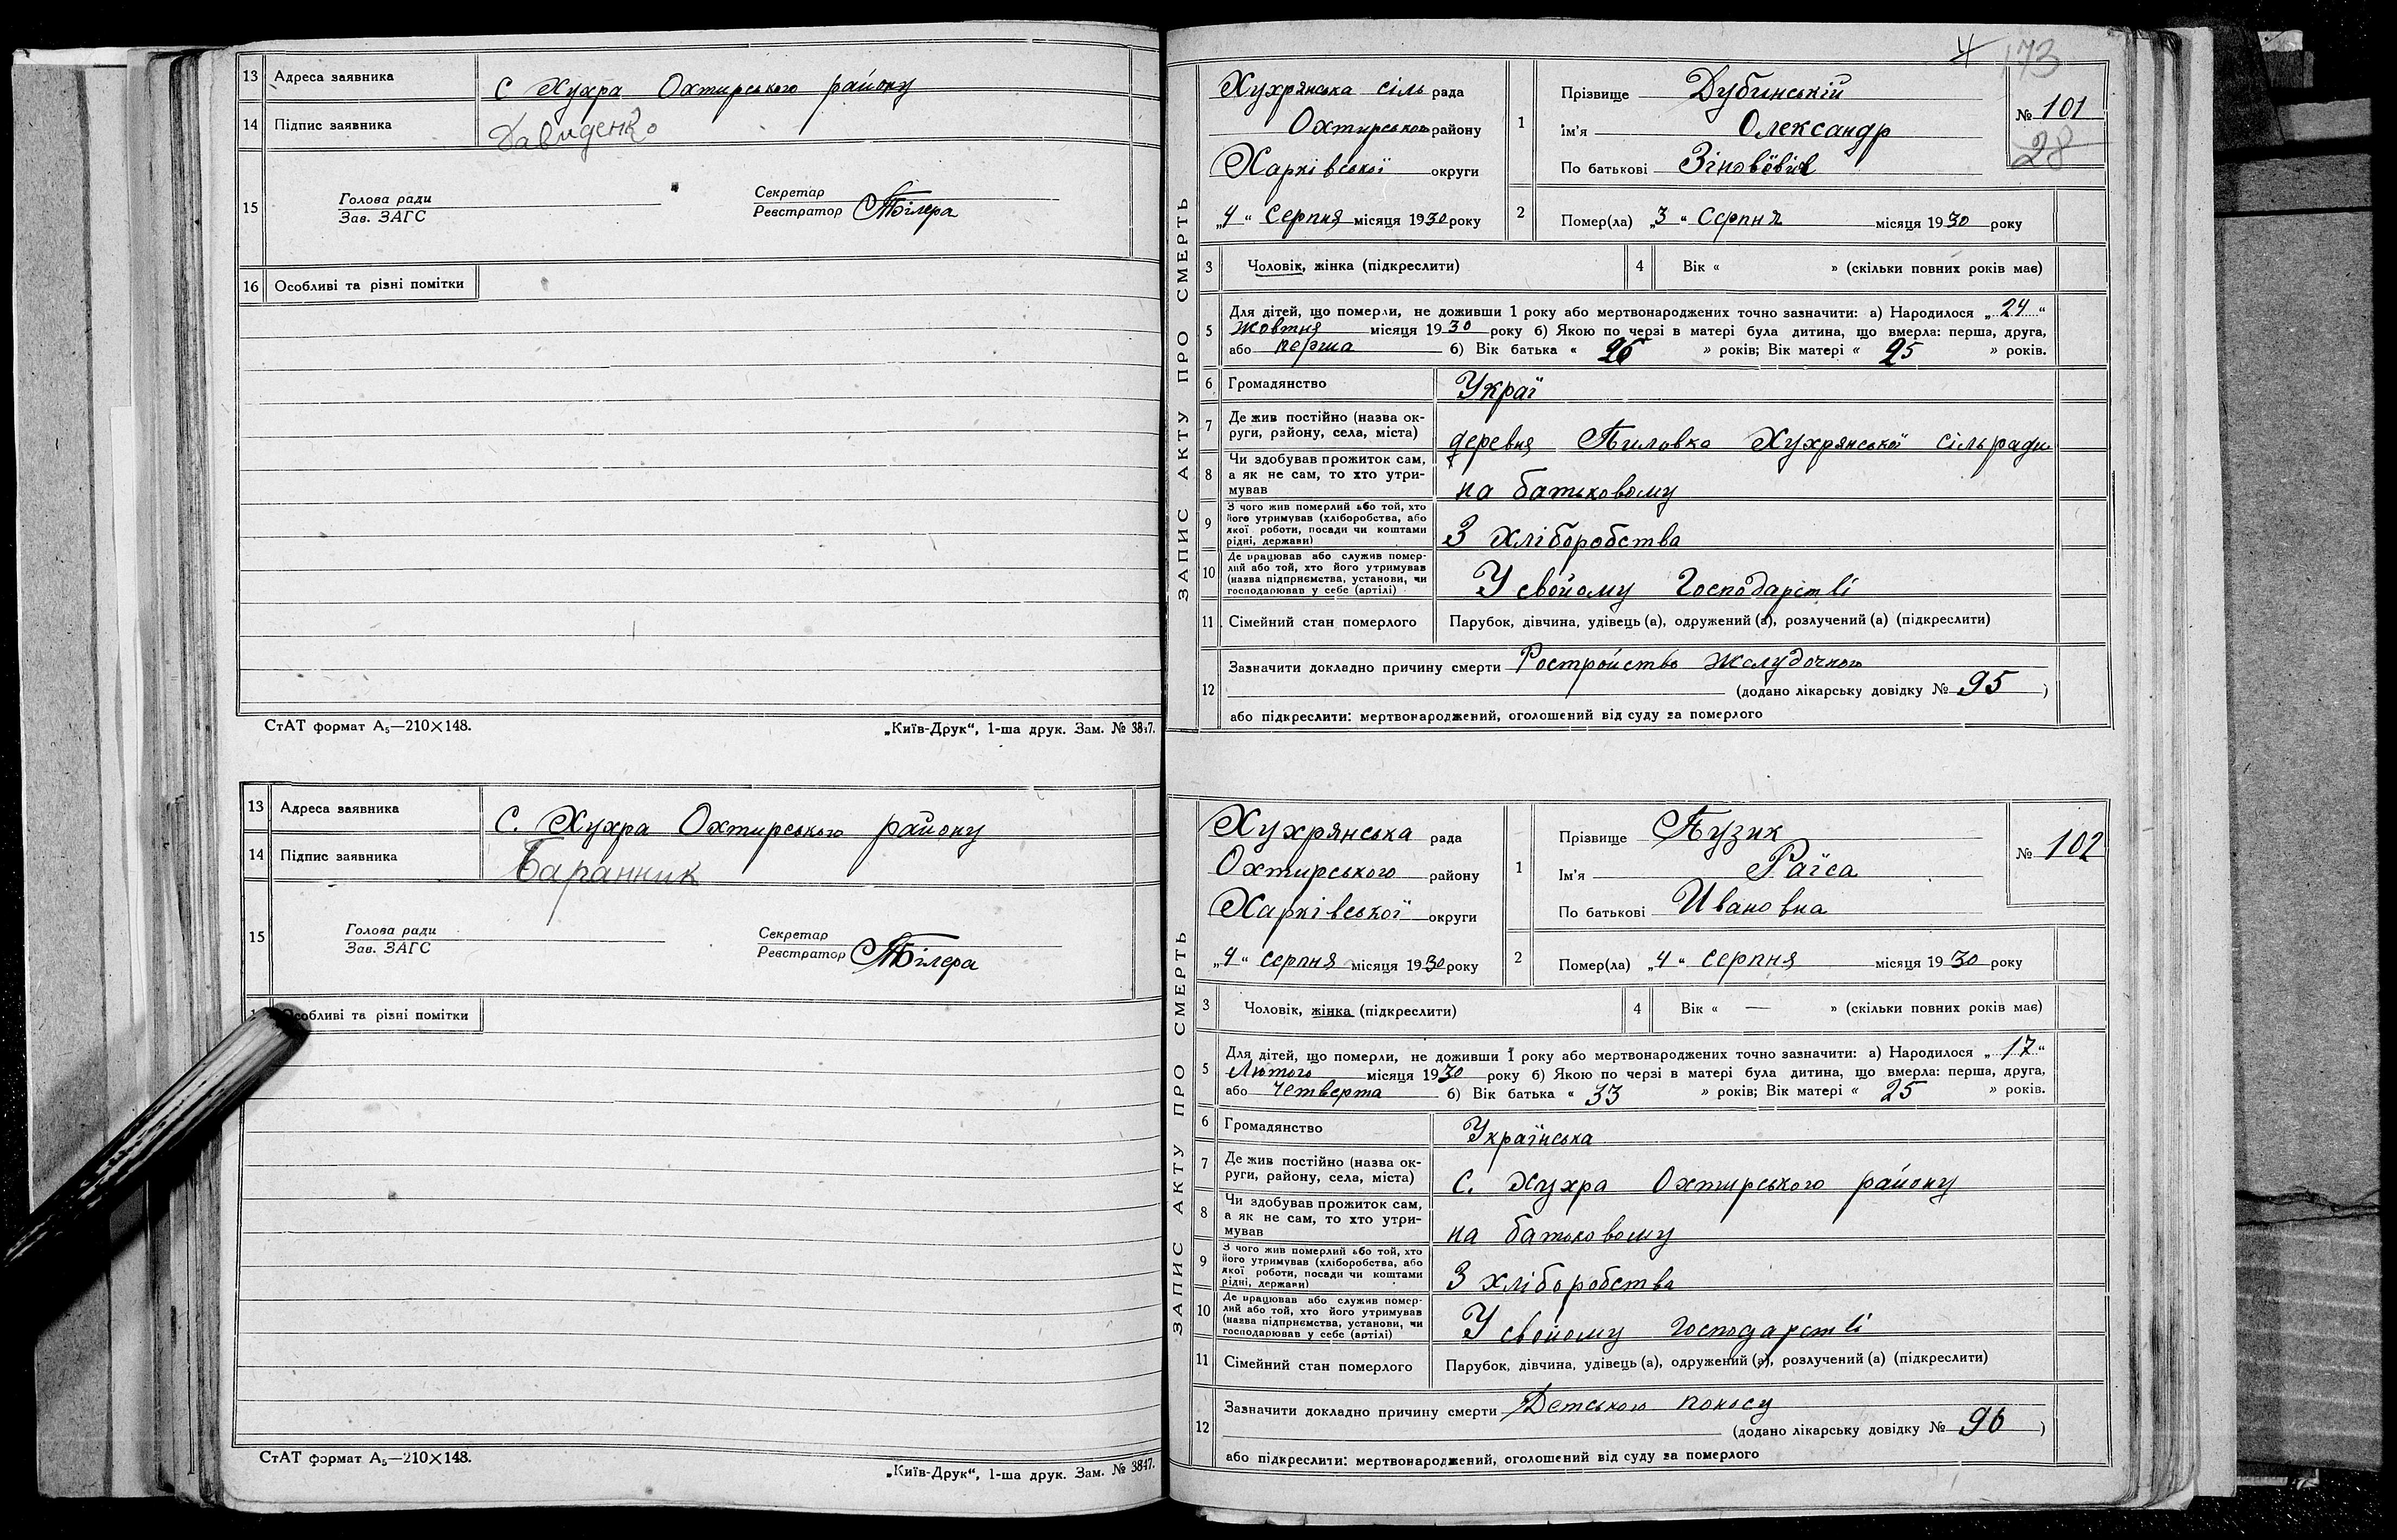 13 Адреса заявника С Хухра Охтирського району
14 Підпис заявника Давиденко
15 Голова ради
Зав. ЗАГС
Секретар
Реєстратор Білера
16 Особливі та різні помітки
СтАТ формат А₅—210×148. „Київ-Друк“, 1-ша друк. Зам. № 3847.
13 Адреса заявника С. Хухра Охтирського району
14 Підпис заявника Баранник
15 Голова ради
Зав. ЗАГС
Секретар
Реєстратор Білера
Особливі та різні помітки
СтАТ формат А₅—210×148. „Київ-Друк“, 1-ша друк. Зам. № 3847.
173
ЗАПИС АКТУ ПРО СМЕРТЬ
Хухрянська сіль рада
Охтирського району
Харківської округи
„4“ Серпня місяця 1930 року
1 Прізвище Дубинській
Ім'я Олександр
По батькові Зіновӥвич
№ 101
28
2 Помер(ла) „3“ Серпня місяця 1930 року
3 Чоловік, жінка (підкреслити) 4 Вік « » (скільки повних років має)
5 Для дітей, що померли, не доживши 1 року або мертвонароджених точно зазначити: а) Народилося „24“
жовтня місяця 1930 року б) Якою по черзі в матері була дитина, що вмерла: перша, друга,
або перша б) Вік батька « 26 » років; Вік матері « 25 » років.
6 Громадянство Украї
7 Де жив постійно (назва ок-
руги, району, села, міста) деревня Пиловка Хухрянської сільради
8 Чи здобував прожиток сам,
а як не сам, то хто утри-
мував на батьковому
9 З чого жив померлий або той, хто
його утримував (хліборобства, або
якої роботи, посади чи коштами
рідні, держави) З хліборобства
10 Де працював або служив помер-
лий або той, хто його утримував
(назва підприємства, установи, чи
господарював у себе (артілі) У свойому Господарстві
11 Сімейний стан померлого Парубок, дівчина, удівець (а), одружений (а), розлучений (а) (підкреслити)
12 Зазначити докладно причину смерти Ростройство жолудочного
(додано лікарську довідку № 95 )
або підкреслити: мертвонароджений, оголошений від суду за померлого
ЗАПИС АКТУ ПРО СМЕРТЬ
Хухрянська рада
Охтирського району
Харківської округи
„4“ серпня місяця 1930 року
1 Прізвище Пузик
Ім'я Раїса
По батькові Ивановна
№ 102
2 Помер(ла) „4“ серпня місяця 1930 року
3 Чоловік, жінка (підкреслити) 4 Вік « — » (скільки повних років має)
5 Для дітей, що померли, не доживши 1 року або мертвонароджених точно зазначити: а) Народилося „17“
Лютого місяця 1930 року б) Якою по черзі в матері була дитина, що вмерла: перша, друга,
або четверта б) Вік батька « 33 » років; Вік матері « 25 » років.
6 Громадянство Українська
7 Де жив постійно (назва ок-
руги, району, села, міста) С. Хухра Охтирського району
8 Чи здобував прожиток сам,
а як не сам, то хто утри-
мував на батьковому
9 З чого жив померлий або той, хто
його утримував (хліборобства, або
якої роботи, посади чи коштами
рідні, держави) З хліборобства
10 Де працював або служив помер-
лий або той, хто його утримував
(назва підприємства, установи, чи
господарював у себе (артілі) У свойому господарстві
11 Сімейний стан померлого Парубок, дівчина, удівець (а), одружений (а), розлучений (а) (підкреслити)
12 Зазначити докладно причину смерти Детського поносу
(додано лікарську довідку № 96 )
або підкреслити: мертвонароджений, оголошений від суду за померлого